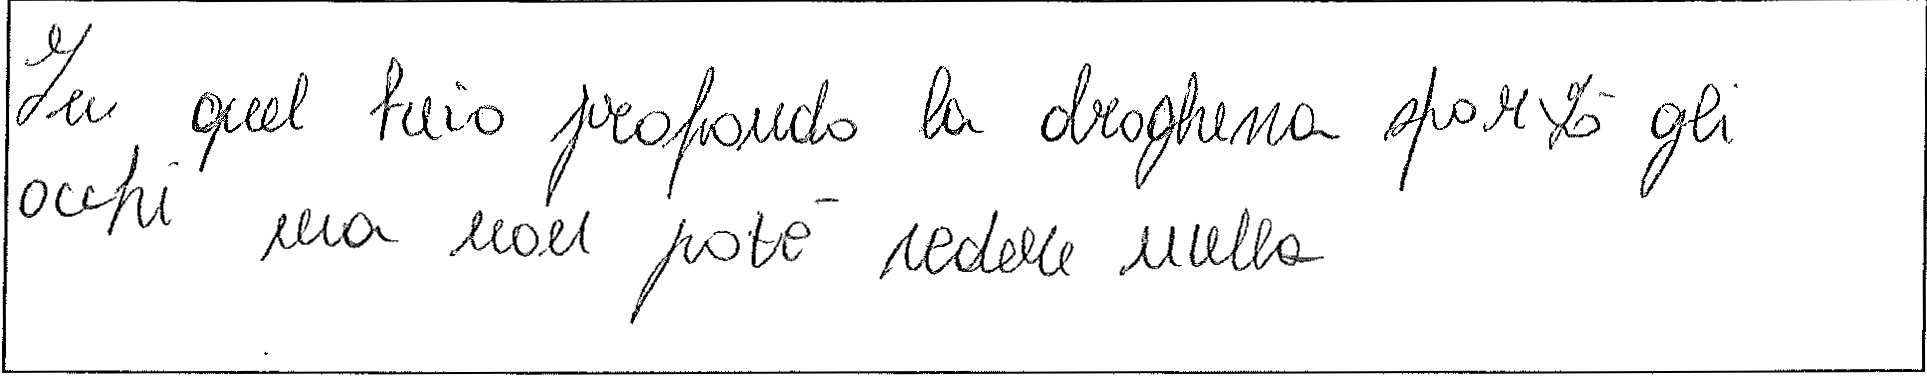 In quel buio profondo la drogheria sforzò gli
occhi ma non potè vedere nulla